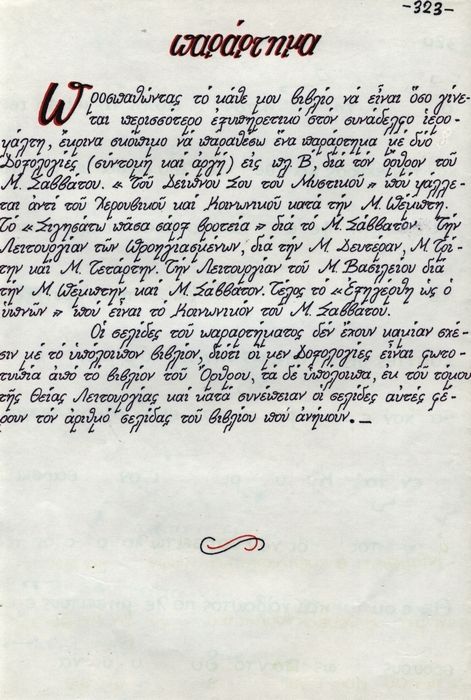 -323-
παράρτημα
Προσπαθώντας τό κάθε μου βιβλίο νά εἶναι ὅσο γίνε-
ται περισσότερο ἐξυπηρετικό στόν συνάδελφο ἱερο-
ψάλτη, ἔκρινα σκόπιμο νά παραθέσω ἕνα παράρτημα μέ δύο
Δοξολογίες (σύντομη καί ἀργή) εἰς πλ Β', διά τόν ὄρθρον τοῦ
Μ. Σαββάτου. «Τοῦ Δείπνου Σου τοῦ Μυστικοῦ» πού ψάλλε-
ται ἀντί τοῦ Χερουβικοῦ καί Κοινωνικοῦ κατά τήν Μ. Πέμπτη.
Τό «Σιγησάτω πᾶσα σάρξ βροτεία» διά τό Μ. Σάββατον. Τήν
Λειτουργίαν τῶν Προηγιασμένων, διά τήν Μ. Δευτέραν, Μ. Τρί-
την καί Μ. Τετάρτην. Τήν Λειτουργίαν τοῦ Μ. Βασιλείου διά
τήν Μ. Πέμπτην καί Μ. Σάββατον. Τέλος τό «Ἐξηγέρθη ὡς ὁ
ὑπνῶν» πού εἶναι τό Κοινωνικόν τοῦ Μ. Σαββάτου.
Οἱ σελίδες τοῦ παραρτήματος δέν ἔχουν καμίαν σχέ-
σιν μέ τό ὑπόλοιπον βιβλίον, διότι οἱ μέν Δοξολογίες εἶναι φωτο-
τυπία ἀπό τό βιβλίον τοῦ Ὄρθρου, τά δέ ὑπόλοιπα, ἐκ τοῦ τόμου
τῆς Θείας Λειτουργίας καί κατά συνέπειαν οἱ σελίδες αὐτές φέ-
ρουν τόν ἀριθμό σελίδας τοῦ βιβλίου πού ἀνήκουν._